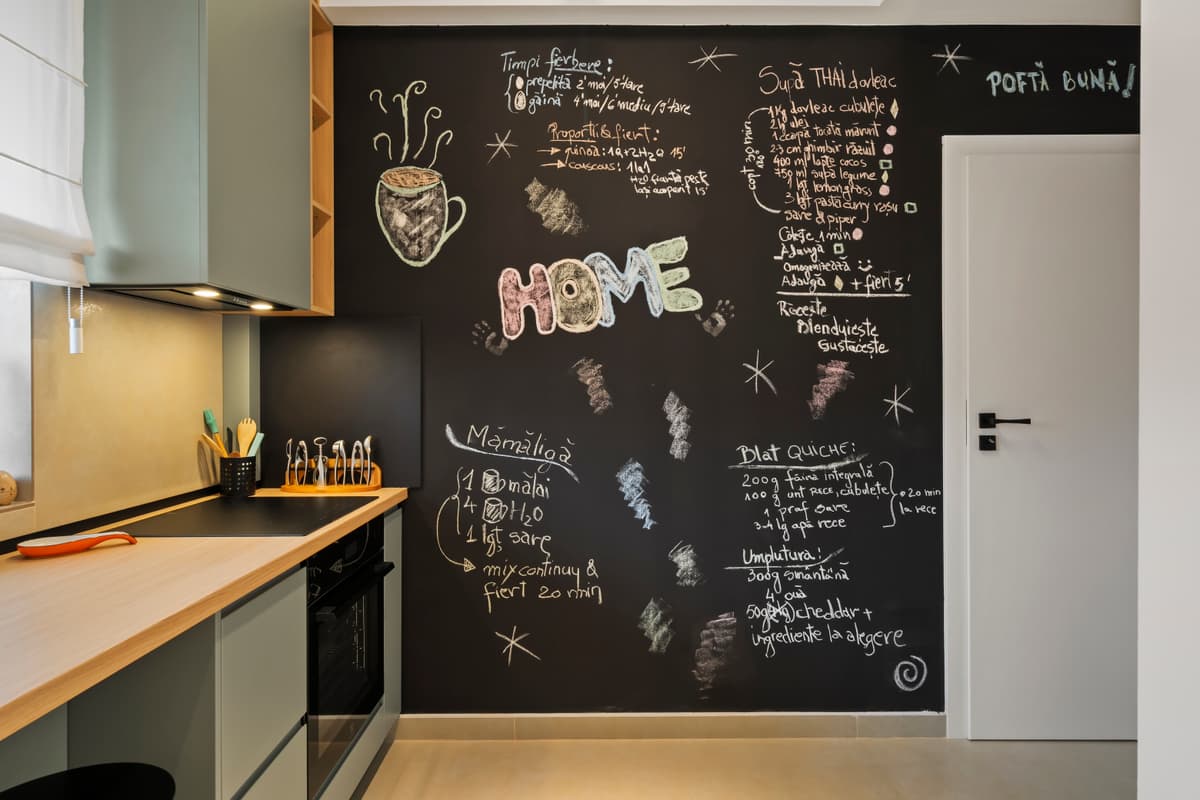 Timpi fierbere:
prepeliță 2' moi/5' tare
găină 4' moi/6' mediu/9' tare
Proporții & fiert:
quinoa: 1Q+2H2O 15'
couscous: 1la1
H2O fiartă peste
lași acoperit 15'
HOME
Mămăligă
1 mălai
4 H2O
1 lgț sare
mix continuu &
fiert 20 min
Supă THAI dovleac
1 kg dovleac cubulețe
2 lg ulei
1 ceapă tocată mărunt
2-3 cm ghimbir răzuit
400 ml lapte cocos
750 ml supă legume
1 lgț lemongrass
3 lgț pastă curry roșu
sare & piper
copt 30 min
Călește 1 min
Adaugă
Omogenizează
Adaugă + fieri 5'
Răcește
Blenduiește
Gustăcește
Blat QUICHE:
200g făină integrală
100g unt rece, cubulețe
1 praf sare
3-4 lg apă rece
20 min
la rece
Umplutură:
300g smântână
4 ouă
50g cheddar +
ingrediente la alegere
POFTĂ BUNĂ!